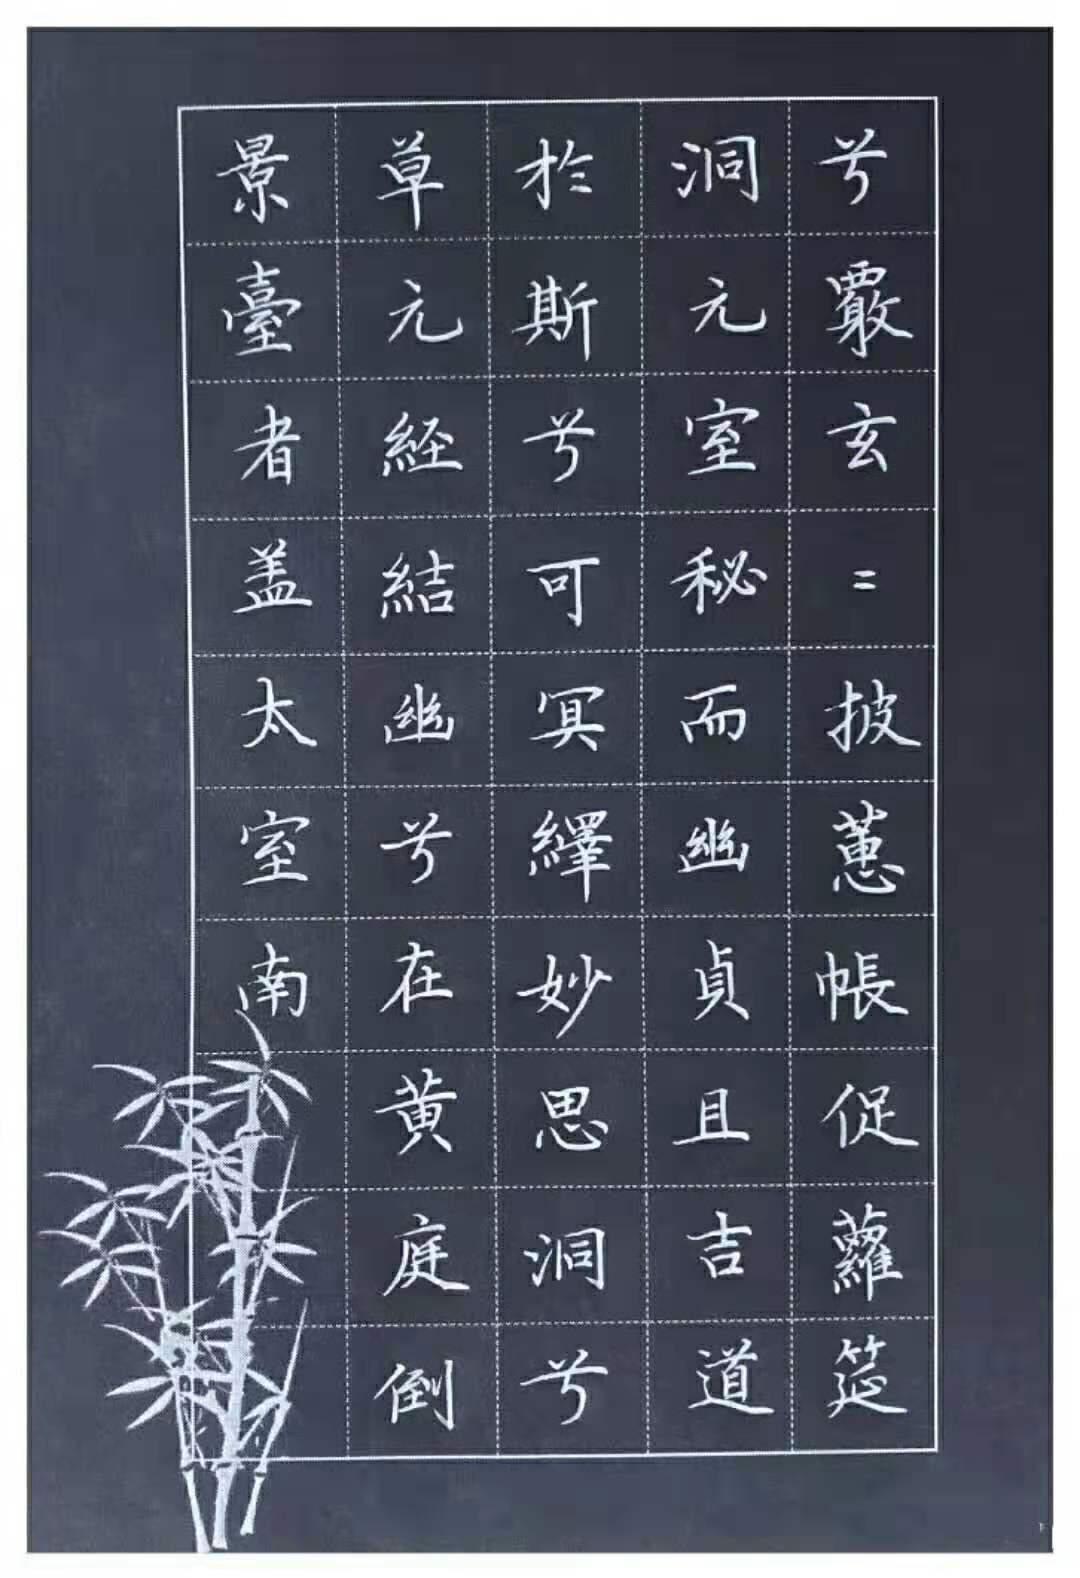 兮覈玄=披蕙帳促蘿筵
洞元室秘而幽貞且吉道
於斯兮可冥繹妙思洞兮
草元経結幽兮在黄庭倒
景臺者盖太室南